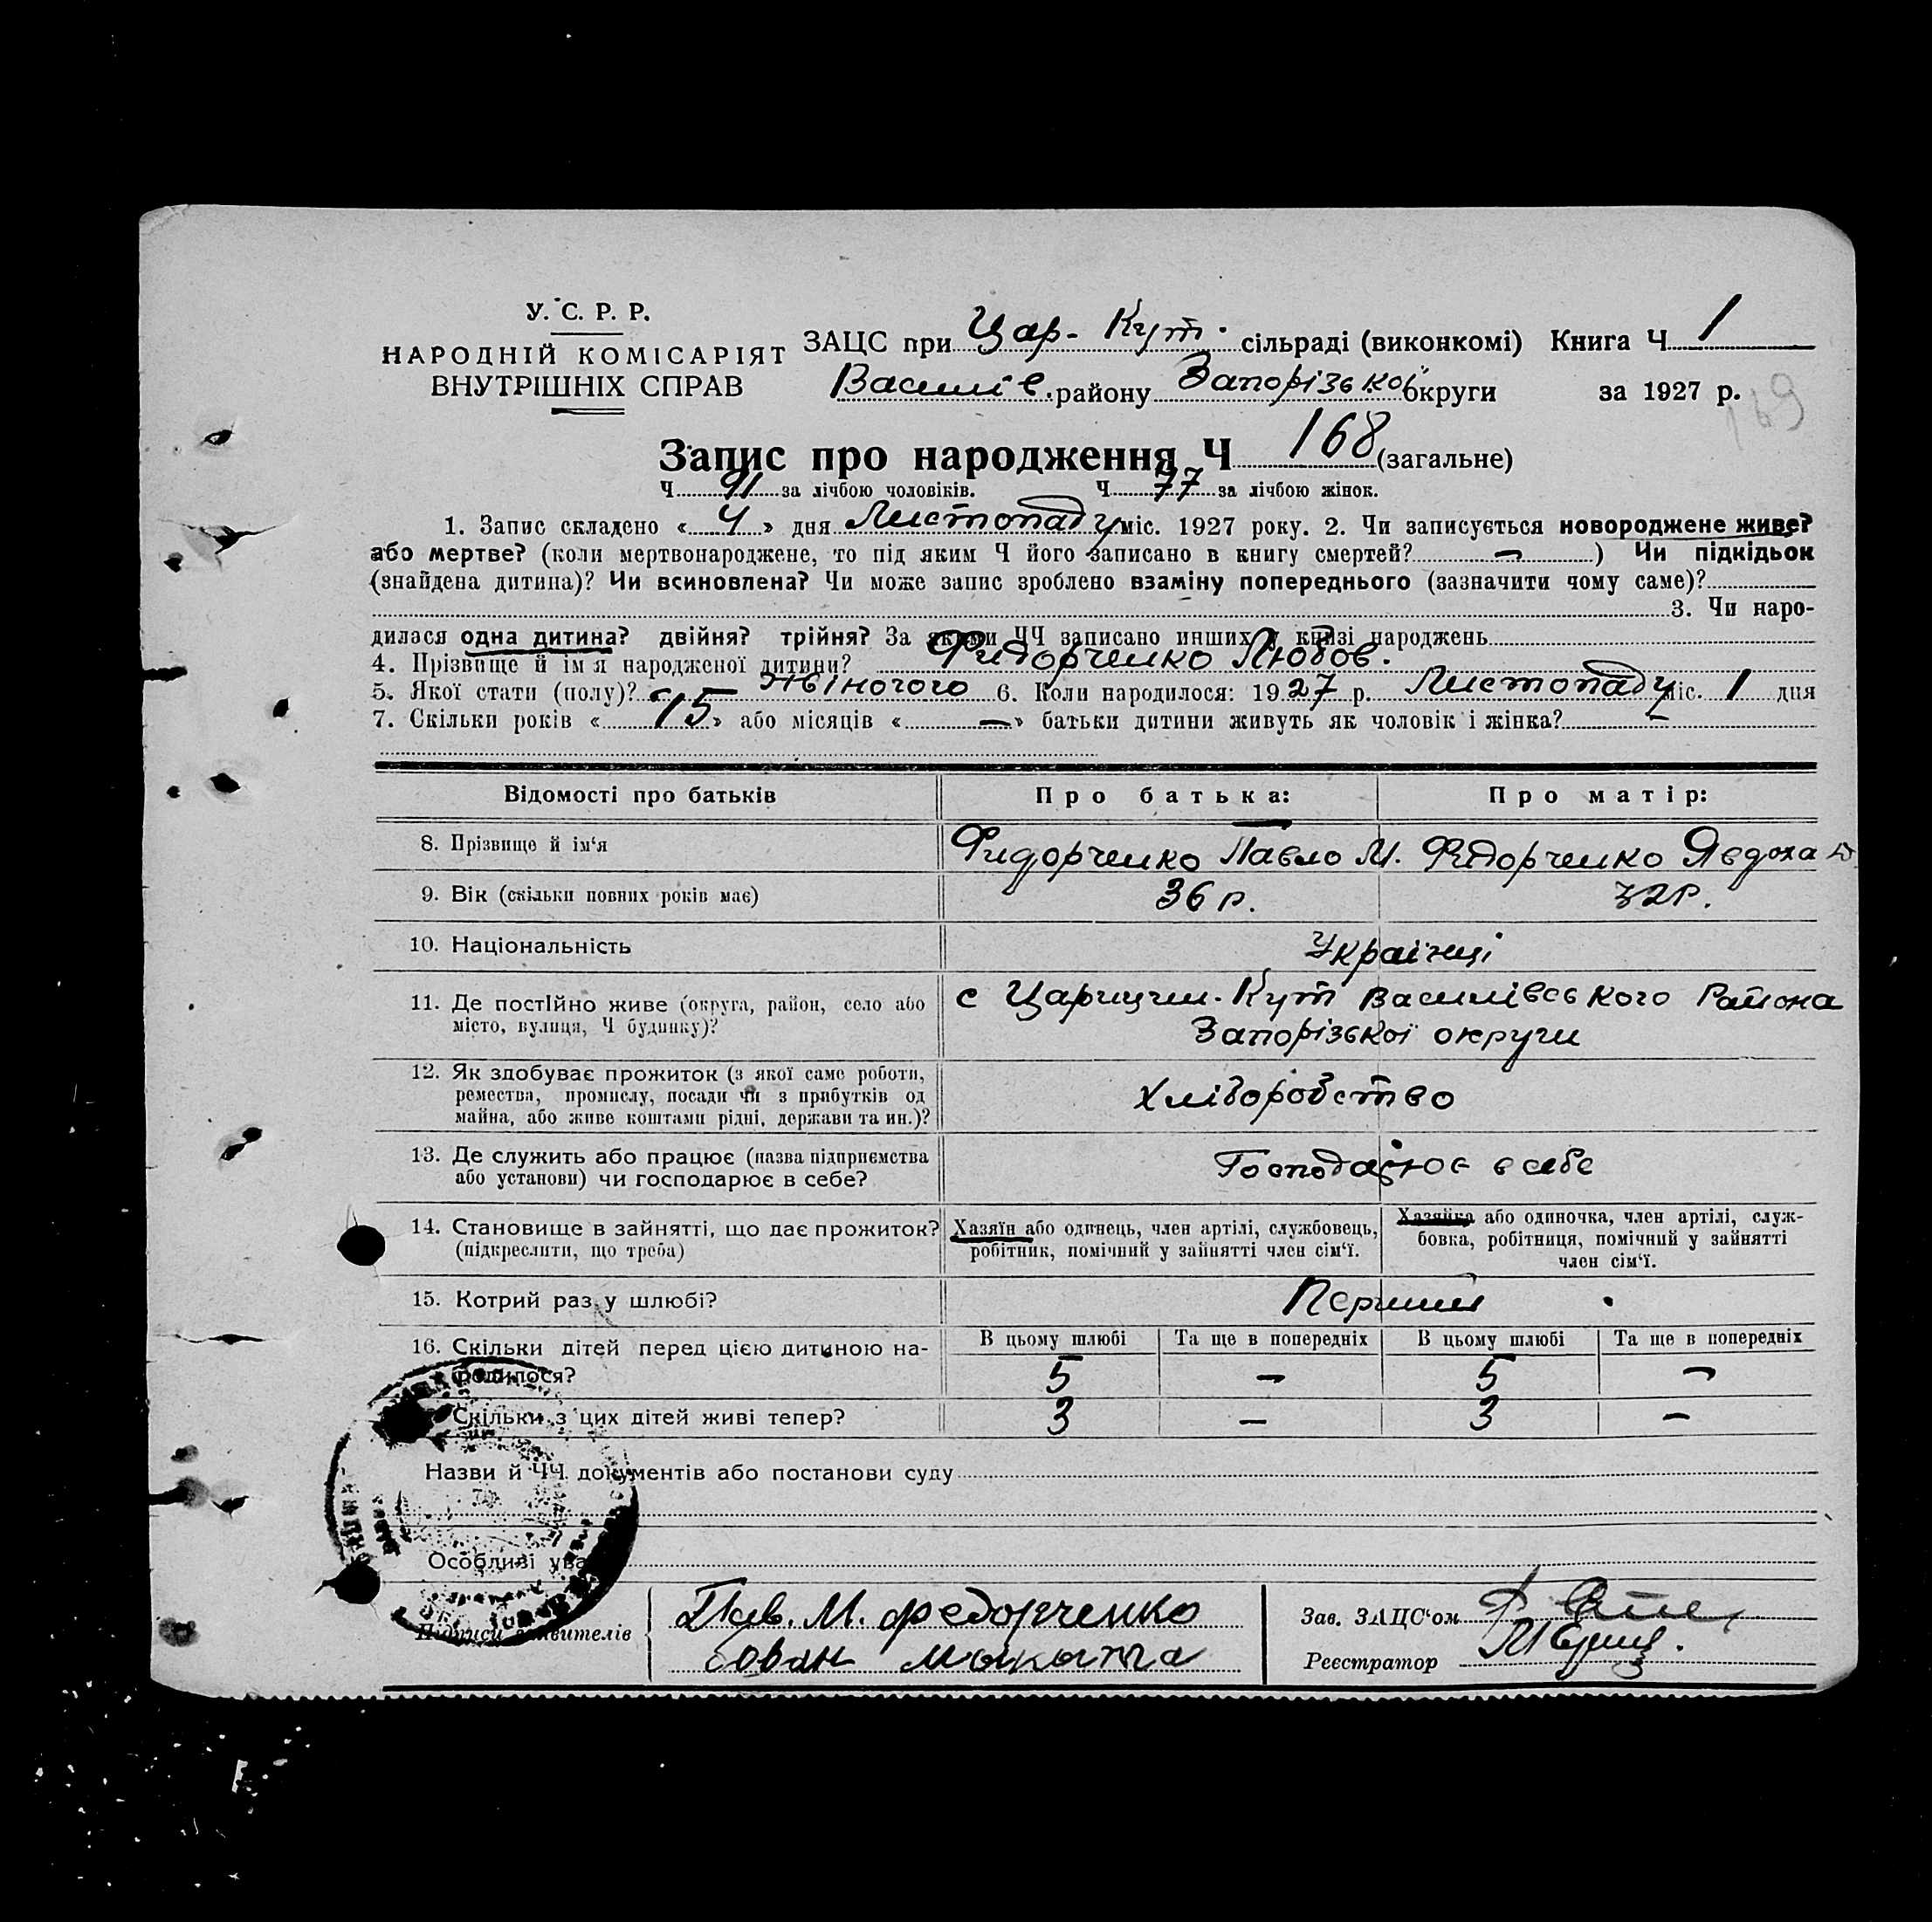 У. С. Р. Р.
НАРОДНІЙ КОМІСАРІЯТ
ВНУТРІШНІХ СПРАВ
ЗАЦС при Цар- Кут. сільраді (виконкомі) Книга Ч 1
Василів. району Запорізької округи за 1927 р.
169
Запис про народження Ч 168 (загальне)
Ч 91 за лічбою чоловіків. Ч 77 за лічбою жінок.
1. Запис складено « 4 » дня Листопаду міс. 1927 року. 2. Чи записується новороджене живе?
або мертве? (коли мертвонароджене, то під яким Ч його записано в книгу смертей? – ) Чи підкідьок
(знайдена дитина)? Чи всиновлена? Чи може запис зроблено взаміну попереднього (зазначити чому саме)?
3. Чи наро-
дилася одна дитина? двійня? трійня? За якими ЧЧ записано инших у книзі народжень
4. Прізвище й ім'я народженої дитини? Фидорченко Любов.
5. Якої стати (полу)? жіночого 6. Коли народилося: 1927 р. Листопаду міс. 1 дня
7. Скільки років « 15 » або місяців « – » батьки дитини живуть як чоловік і жінка? –
Відомості про батьків Про батька: Про матір:
8. Прізвище й ім'я Фидорченко Павло М. Фидорченко Явдоха
9. Вік (скільки повних років має) 36 р. 32 р.
10. Національність Українці
11. Де постійно живе (округа, район, село або с Царицин-Кут Василівського Района
місто, вулиця, Ч будинку)? Запорізької округи
12. Як здобуває прожиток (з якої саме роботи,
ремества, промислу, посади чи з прибутків од Хліборобство
майна, або живе коштами рідні, держави та ин.)?
13. Де служить або працює (назва підприємства Господарює в себе
або установи) чи господарює в себе?
14. Становище в зайнятті, що дає прожиток? Хазяїн або одинець, член артілі, службовець, Хазяйка або одиночка, член артілі, служ-
(підкреслити, що треба) робітник, помічний у зайнятті член сім'ї. бовка, робітниця, помічний у зайнятті
член сім'ї.
15. Котрий раз у шлюбі? Перший
В цьому шлюбі Та ще в попередніх В цьому шлюбі Та ще в попередніх
16. Скільки дітей перед цією дитиною на-
родилося? 5 – 5 –
Скільки з цих дітей живі тепер? 3 – 3 –
Назви й ЧЧ документів або постанови суду
Особливі
Підписи заявителів Пав. М. Федорченко
Зав. ЗАЦС'ом
Реєстратор